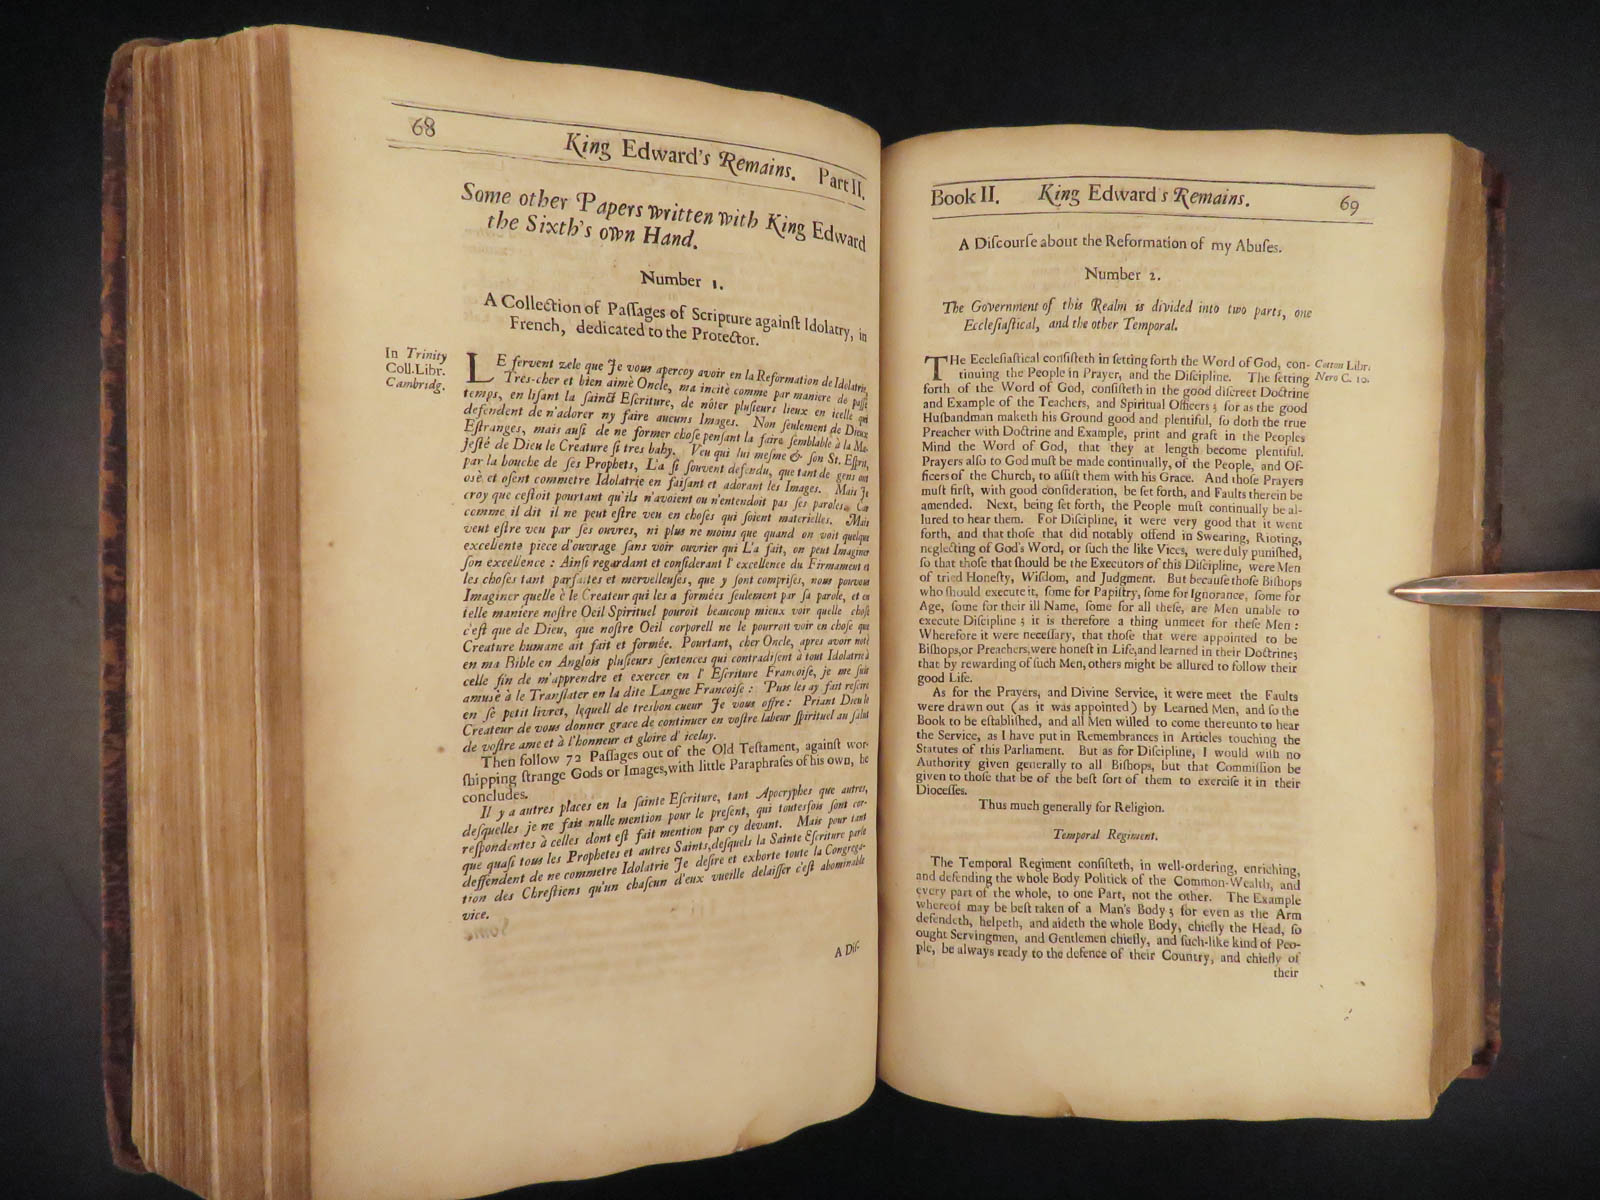 68
King Edward's Remains. Part II.
Some other Papers written with King Edward
the Sixth's own Hand.
Number 1.
A Collection of Paſſages of Scripture againſt Idolatry, in
French, dedicated to the Protector.
In Trinity
Coll. Libr.
Cambridg.
LE fervent zele que Je vous aperçoy avoir en la Reformation de Idolatrie,
Très-cher et bien aimé Oncle, ma incité comme par maniere de paſſe
temps, en liſant la ſainct Eſcriture, de nôter pluſieurs lieux en icelle qui
defendent de n'adorer ny faire aucuns Images. Non ſeulement de Dieux
Eſtranges, mais auſi de ne former choſe penſant la faire ſemblable à la Ma-
jeſté de Dieu le Creature ſi tres baby. Veu qui lui meſme & ſon St. Eſprit,
par la bouche de ſes Prophets, L'a ſi ſouvent defendu, que tant de gens ont
osè et oſent commetre Idolatrie en faiſant et adorant les Images. Mais Je
croy que ceſtoit pourtant qu'ils n'avoient ou n'entendoit pas ſes paroles. Car
comme il dit il ne peut eſtre veu en choſes qui ſoient materielles. Mais
veut eſtre veu par ſes ouvres, ni plus ne moins que quand on voit quelque
excellente piece d'ouvrage ſans voir ouvrier qui L'a fait, on peut Imaginer
ſon excellence: Ainſi regardant et conſiderant l'excellence du Firmament et
les choſes tant parfaites et mervelleuſes, que y ſont compriſes, nous pouvons
Imaginer quelle è le Createur qui les a formées ſeulement par ſa parole, et en
telle maniere noſtre Oeil Spirituel pouroit beaucoup mieux voir quelle choſe
c'eſt que de Dieu, que noſtre Oeil corporell ne le pourroit voir en choſe que
Creature humane ait fait et formée. Pourtant, cher Oncle, apres avoir noté
en ma Bible en Anglois pluſieurs ſentences qui contradiſent à tout Idolatrie à
celle fin de m'apprendre et exercer en l'Eſcriture Françoiſe, je me ſuis
amusè à le Tranſlater en la dite Langue Françoiſe: Puis les ay fait reſcire
en ſe petit livret, lequell de tresbon cueur Je vous offre: Priant Dieu le
Createur de vous donner grace de continuer en voſtre labeur ſpirituel au ſalut
de voſtre ame et à l'honneur et gloire d'iceluy.
Then follow 72 Paſſages out of the Old Teſtament, againſt wor-
ſhipping ſtrange Gods or Images, with little Paraphraſes of his own, he
concludes.
Il y a autres places en la ſainte Eſcriture, tant Apocryphes que autres,
deſquelles je ne fais nulle mention pour le preſent, qui toutesfois ſont cor-
reſpondentes à celles dont eſt fait mention par cy devant. Mais pour tant
que quaſi tous les Prophetes et autres Saints, deſquels la Sainte Eſcriture parle
deffendent de ne commetre Idolatrie Je deſire et exhorte toute la Congrega-
tion des Chreſtiens qu'un chaſcun d'eux vueille delaiſſer c'eſt abominable
vice.
A Diſ-
Book II. King Edward's Remains. 69
A Diſcourſe about the Reformation of my Abuſes.
Number 2.
The Government of this Realm is divided into two parts, one
Eccleſiaſtical, and the other Temporal.
THe Eccleſiaſtical conſiſteth in ſetting forth the Word of God, con-
tinuing the People in Prayer, and the Diſcipline. The ſetting
forth of the Word of God, conſiſteth in the good diſcreet Doctrine
and Example of the Teachers, and Spiritual Officers; for as the good
Huſbandman maketh his Ground good and plentiful, ſo doth the true
Preacher with Doctrine and Example, print and graft in the Peoples
Mind the Word of God, that they at length become plentiful.
Prayers alſo to God muſt be made continually, of the People, and Of-
ficers of the Church, to aſſiſt them with his Grace. And thoſe Prayers
muſt firſt, with good conſideration, be ſet forth, and Faults therein be
amended. Next, being ſet forth, the People muſt continually be al-
lured to hear them. For Diſcipline, it were very good that it went
forth, and that thoſe that did notably offend in Swearing, Rioting,
neglecting of God's Word, or ſuch the like Vices, were duly puniſhed,
ſo that thoſe that ſhould be the Executors of this Diſcipline, were Men
of tried Honeſty, Wiſdom, and Judgment. But becauſe thoſe Biſhops
who ſhould execute it, ſome for Papiſtry, ſome for Ignorance, ſome for
Age, ſome for their ill Name, ſome for all theſe, are Men unable to
execute Diſcipline; it is therefore a thing unmeet for theſe Men:
Wherefore it were neceſſary, that thoſe that were appointed to be
Biſhops, or Preachers, were honeſt in Life, and learned in their Doctrine;
that by rewarding of ſuch Men, others might be allured to follow their
good Life.
Cotton Libr.
Nero C. 10.
As for the Prayers, and Divine Service, it were meet the Faults
were drawn out (as it was appointed) by Learned Men, and ſo the
Book to be eſtabliſhed, and all Men willed to come thereunto to hear
the Service, as I have put in Remembrances in Articles touching the
Statutes of this Parliament. But as for Diſcipline, I would wiſh no
Authority given generally to all Biſhops, but that Commiſſion be
given to thoſe that be of the beſt ſort of them to exerciſe it in their
Dioceſſes.
Thus much generally for Religion.
Temporal Regiment.
The Temporal Regiment conſiſteth, in well-ordering, enriching,
and defending the whole Body Politick of the Common-Wealth, and
every part of the whole, to one Part, not the other. The Example
whereof may be beſt taken of a Man's Body; for even as the Arm
defendeth, helpeth, and aideth the whole Body, chiefly the Head, ſo
ought Servingmen, and Gentlemen chiefly, and ſuch-like kind of Peo-
ple, be always ready to the defence of their Country, and chiefly of
their